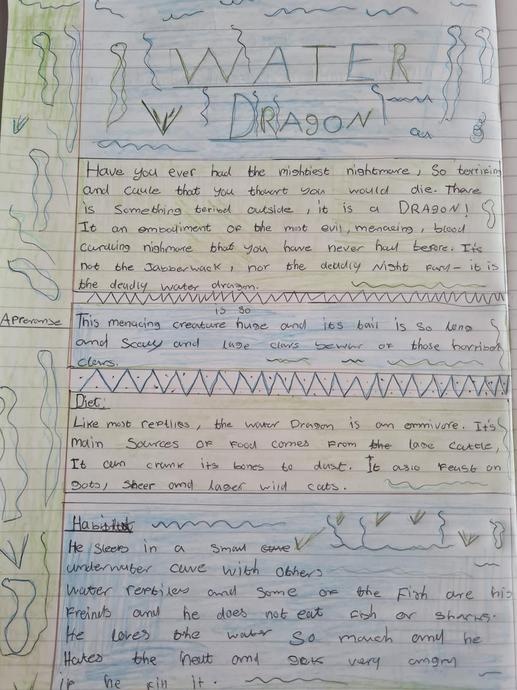 WATER
DRAGON
Have you ever had the mightiest nightmare, So terrifing
and cuule that you thourt you would die. There
is Something terind outside, it is a DRAGON!
It an embodiment of the most evil, menacing, blood
curduing nighmore that you have never had before. It's
not the Jabberwack, nor the deadly Night Fury - it is
the deadly water dragon.
Apreranse
is so
This menacing creature huge and its tail is so long
and Scaly and lage claws bewar of those horribal
claws.
Diet:
Like most reptiles, the water Dragon is an omnivore. It's
main Sources of food comes from the lage Cattle,
It can crank its bones to dust. It aslo Feast on
gots, sheer and lager wild cats.
Habitat
He sleeps in a small cave
underwater cave with others
water reptiles and some of the Fish are his
Freinds and he does not eat fish or sharks.
He loves the water so much and he
Hates the heat and gets very angry
if he